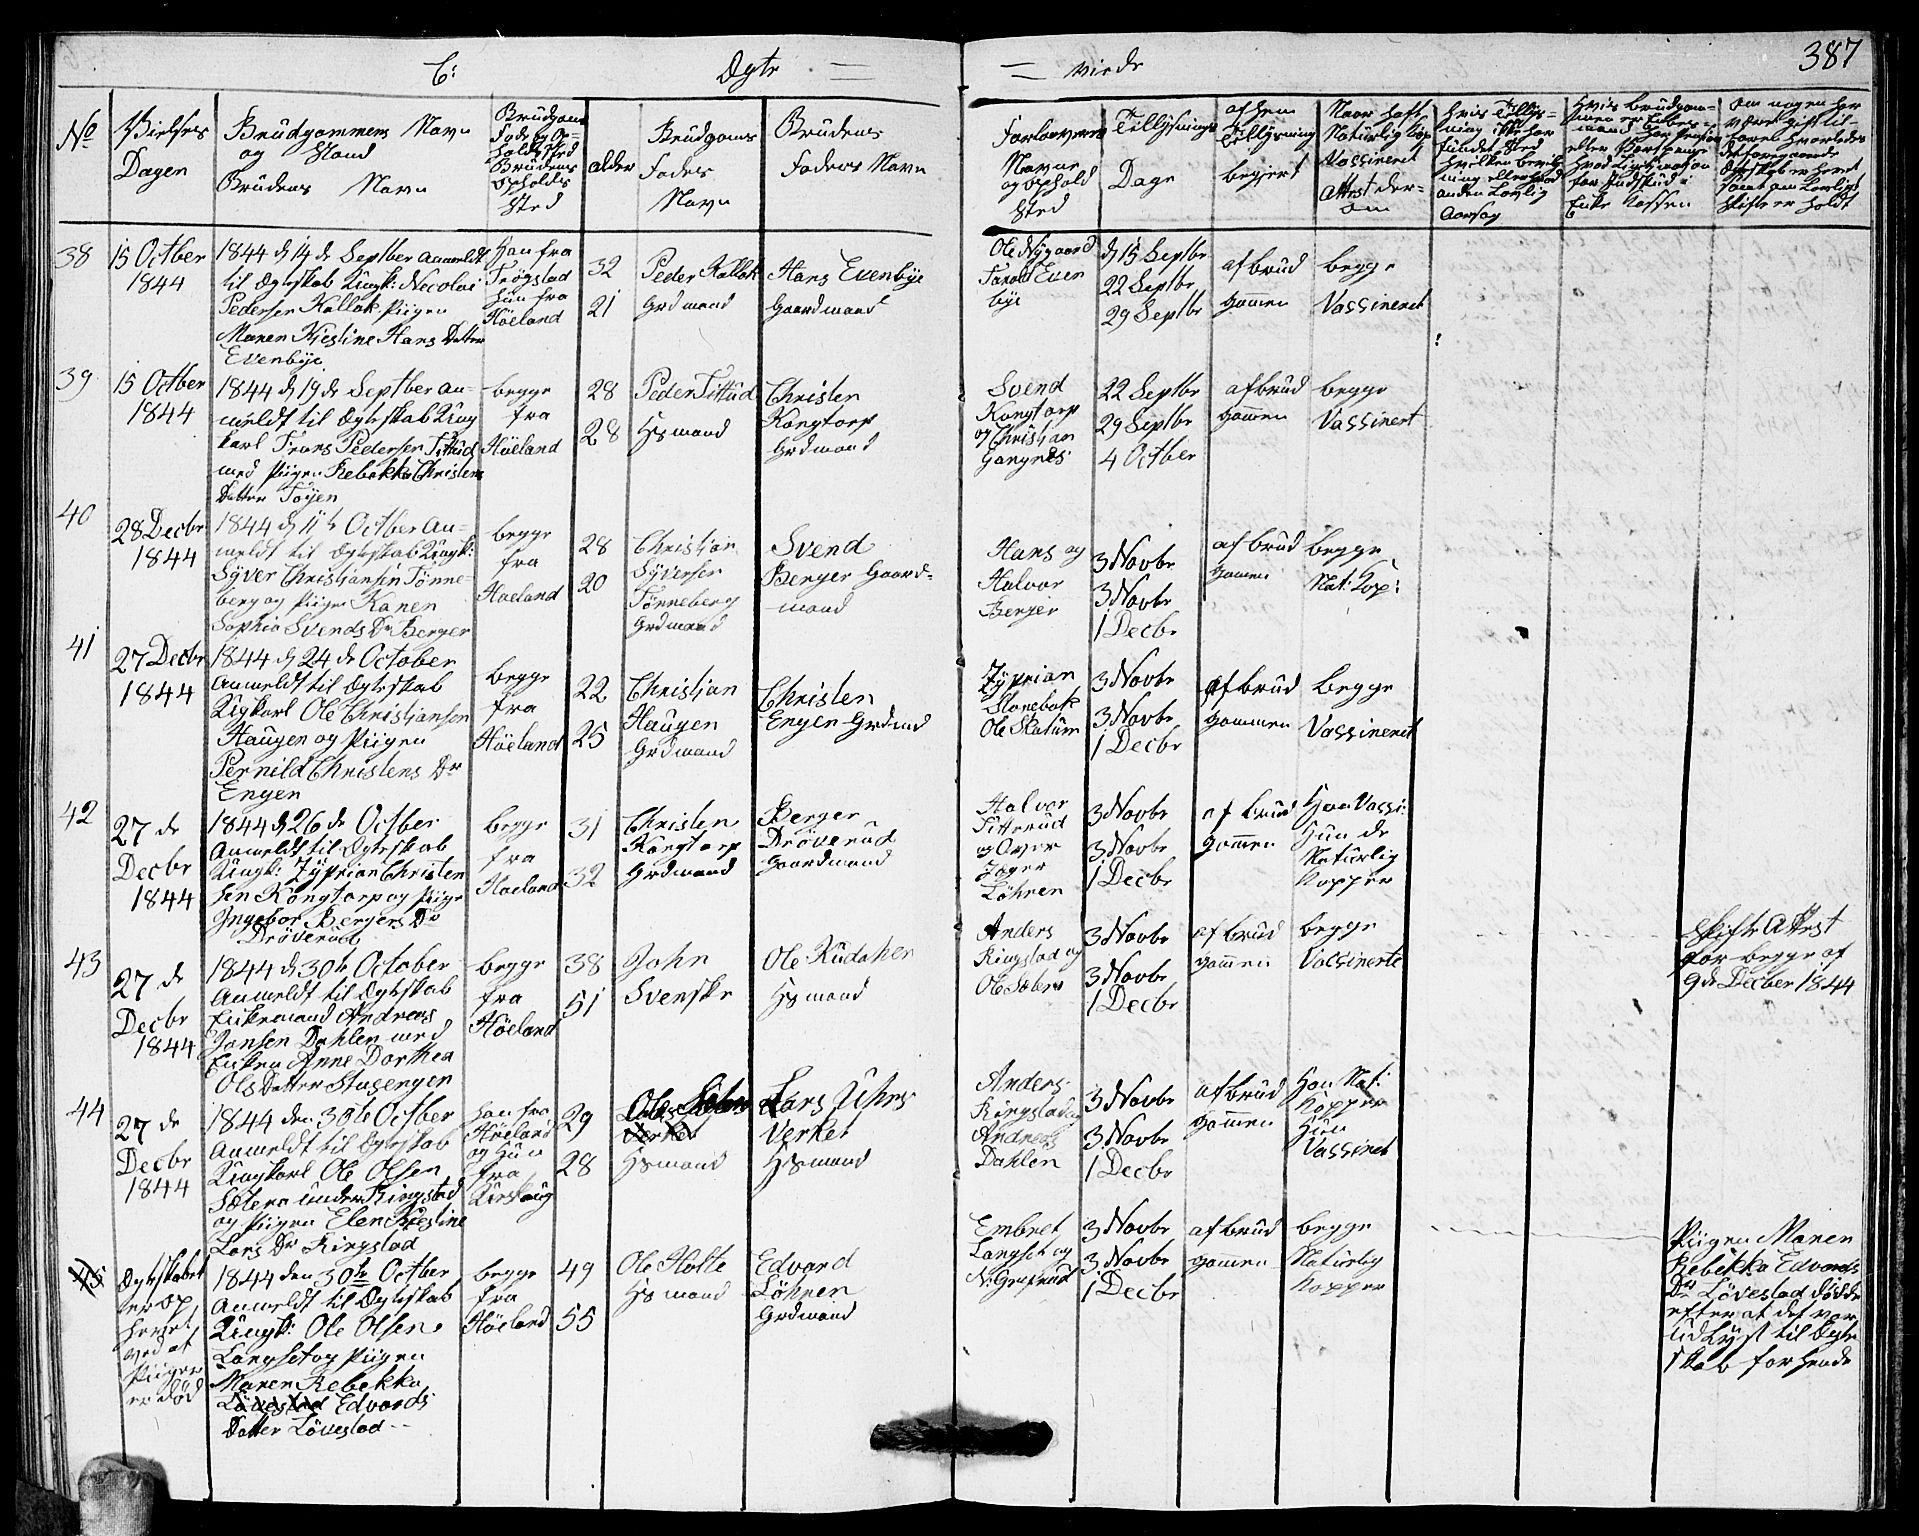 387
C:   Ægte = = viede
No
Vielses
Dagen
Brudgommens Navn
og Stand
Brudens Navn
Brudgoms
Føde og Op-
holds Sted
Brudens
Opholds
Sted
alder
Brudgoms
Faders
Navn
Brudens
Faders Navn
Forlovernes
Navne
og ophold
Sted
Tillysnings
Dage
af hem
Tillysning
begjert
Naar haft
Naturlig Kop
Vassineret
Attest der-
om
Hvis Tillys-
ning ikke har
fundet Sted
hvilken bevil-
ning eller hvad
anden Lovlig
Aarsag
Om nogen har
været gift til-
forn hvorledes
det foregaaende
Ægteskab er hævet
samt om Lovligt
skifte er holdt
38
15 Octber
1844
1844 d 14de Septber Anmeldt
til Ægteskab Ungk: Necolai
Pedersen Kallak Piigen
Maren Kiestine Hans Datter
Evenbye
Han fra
Trøgstad
Hun fra
Høeland
32
21
Peder Kallak
Grdmand
Hans Evenbye
Gaardmand
Ole Nygaard
Tarald Even
bye
d 15 Septbr
22 Septbr
29 Septbr
af brud
gommen
begge
Vassineret
39
15 Octber
1844
1844 d 19de Septber an-
meldt til Ægteskab Ung
karl Frans Pedersen Tittrud
med Piigen Rebekka Christens
Datter Toyen
begge
fra
Høeland
28
28
Peder Tittrud
Hsmand
Christen
Kongtorp
Grdmand
Svend
Kongtorp
og Christian
Gangnes
22 Septbr
29 Septbr
4 Octber
af brud
gommen
begge
Vassinert
40
28 Decbr
1844
1844 d 11te Octber An-
meldt til Ægteskab Ungk:
Syver Christiansen Tønne-
berg og Piigen Karen
Sophia Svends Dr Berger
begge
fra
Høeland
28
20
Christian
Syversen
Tønneberg
Grdmand
Svend
Berger Gaard-
mand
Hans og
Halvor
Berger
3 Novbr
3 Novbr
1 Decbr
af brud
gommen
begge
Nat: Kop:
41
27 Decbr
1844
1844 d 24de October
Anmeldt til Ægteskab
Ungkarl Ole Christiansen
Haugen og Piigen
Pernild Christens Dr
Engen
begge
fra
Høeland
22
25
Christian
Haugen
Grdmand
Christen
Engen Grdmd
Zyprian
Slorebek
Ole Skatum
3 Novbr
3 Novbr
1 Decbr
af brud
gommen
begge
Vassineret
42
27 de
Decbr
1844
1844 d 26de Octber
Anmeldt til Ægteskab
Ungk: Zyprian Christen
sen Kongtorp og Piige
Ingebor Bergers Dr
Drøverud
begge
fra
Høeland
31
32
Christen
Kongtorp
Grdmand
Berger
Drøverud
Gaardmand
Halvor
Titterud
og Over
Jæger
Løhren
3 Novbr
3 Novbr
1 Decbr
af brud
gommen
Han Vassi:
Hun de
Naturlig
Kopper
43
27 de
Decbr
1844
1844 d 30te October
Anmeldt til Ægteskab
Enkemand Andreas
Jansen Dahlen med
Enken Anne Dorthea
Ols Datter Stusengen
begge
fra
Høeland
38
51
John
Svenske
Ole Rudaker
Hsmand
Anders
Ringstad og
Ole Sæter
3 Novbr
3 Novbr
1 Decbr
af brud
gommen
begge
Vassinerte
Skifte Attest
for begge af
9de Decber 1844
44
27 de
Decbr
1844
1844 den 30te Octber
Anmeldt til Ægteskab
Ungkarl Ole Olsen
Sætera under Ringstad
og Piigen Elen Kiestine
Lars Dr Ringstad
Han fra
Høeland
og Hun
fra
Urskoug
29
28
Ole Sæter
Verket
Hsmand
Lars
Verket
Hsmand
Anders
Ringstad og
Andreas
Dahlen
3 Novbr
3 Novbr
1 Decbr
af brud
gommen
Han Nat:
Kopper
Hun
Vassinet
45
Ægteskabet
er op
hevet
ved at
Piigen
er død
1844 den 30te Octber
Anmeldt til Ægteskab
Ungk: Ole Olsen
Langset og Piigen
Maren Rebekka
Løvestad Edvards
Datter Løvestad
begge
fra
Høeland
49
55
Ole Holte
Hsmand
Edvard
Løhren
Grdmand
Embret
Langset og
3 Novbr
3 Novbr
1 Decbr
af brud
gommen
begge
Naturlig
Kopper
Piigen Maren
Rebekka Edvards
Dr Løvestad døde
efter at det var
udlyst til Ægte
skab for hende